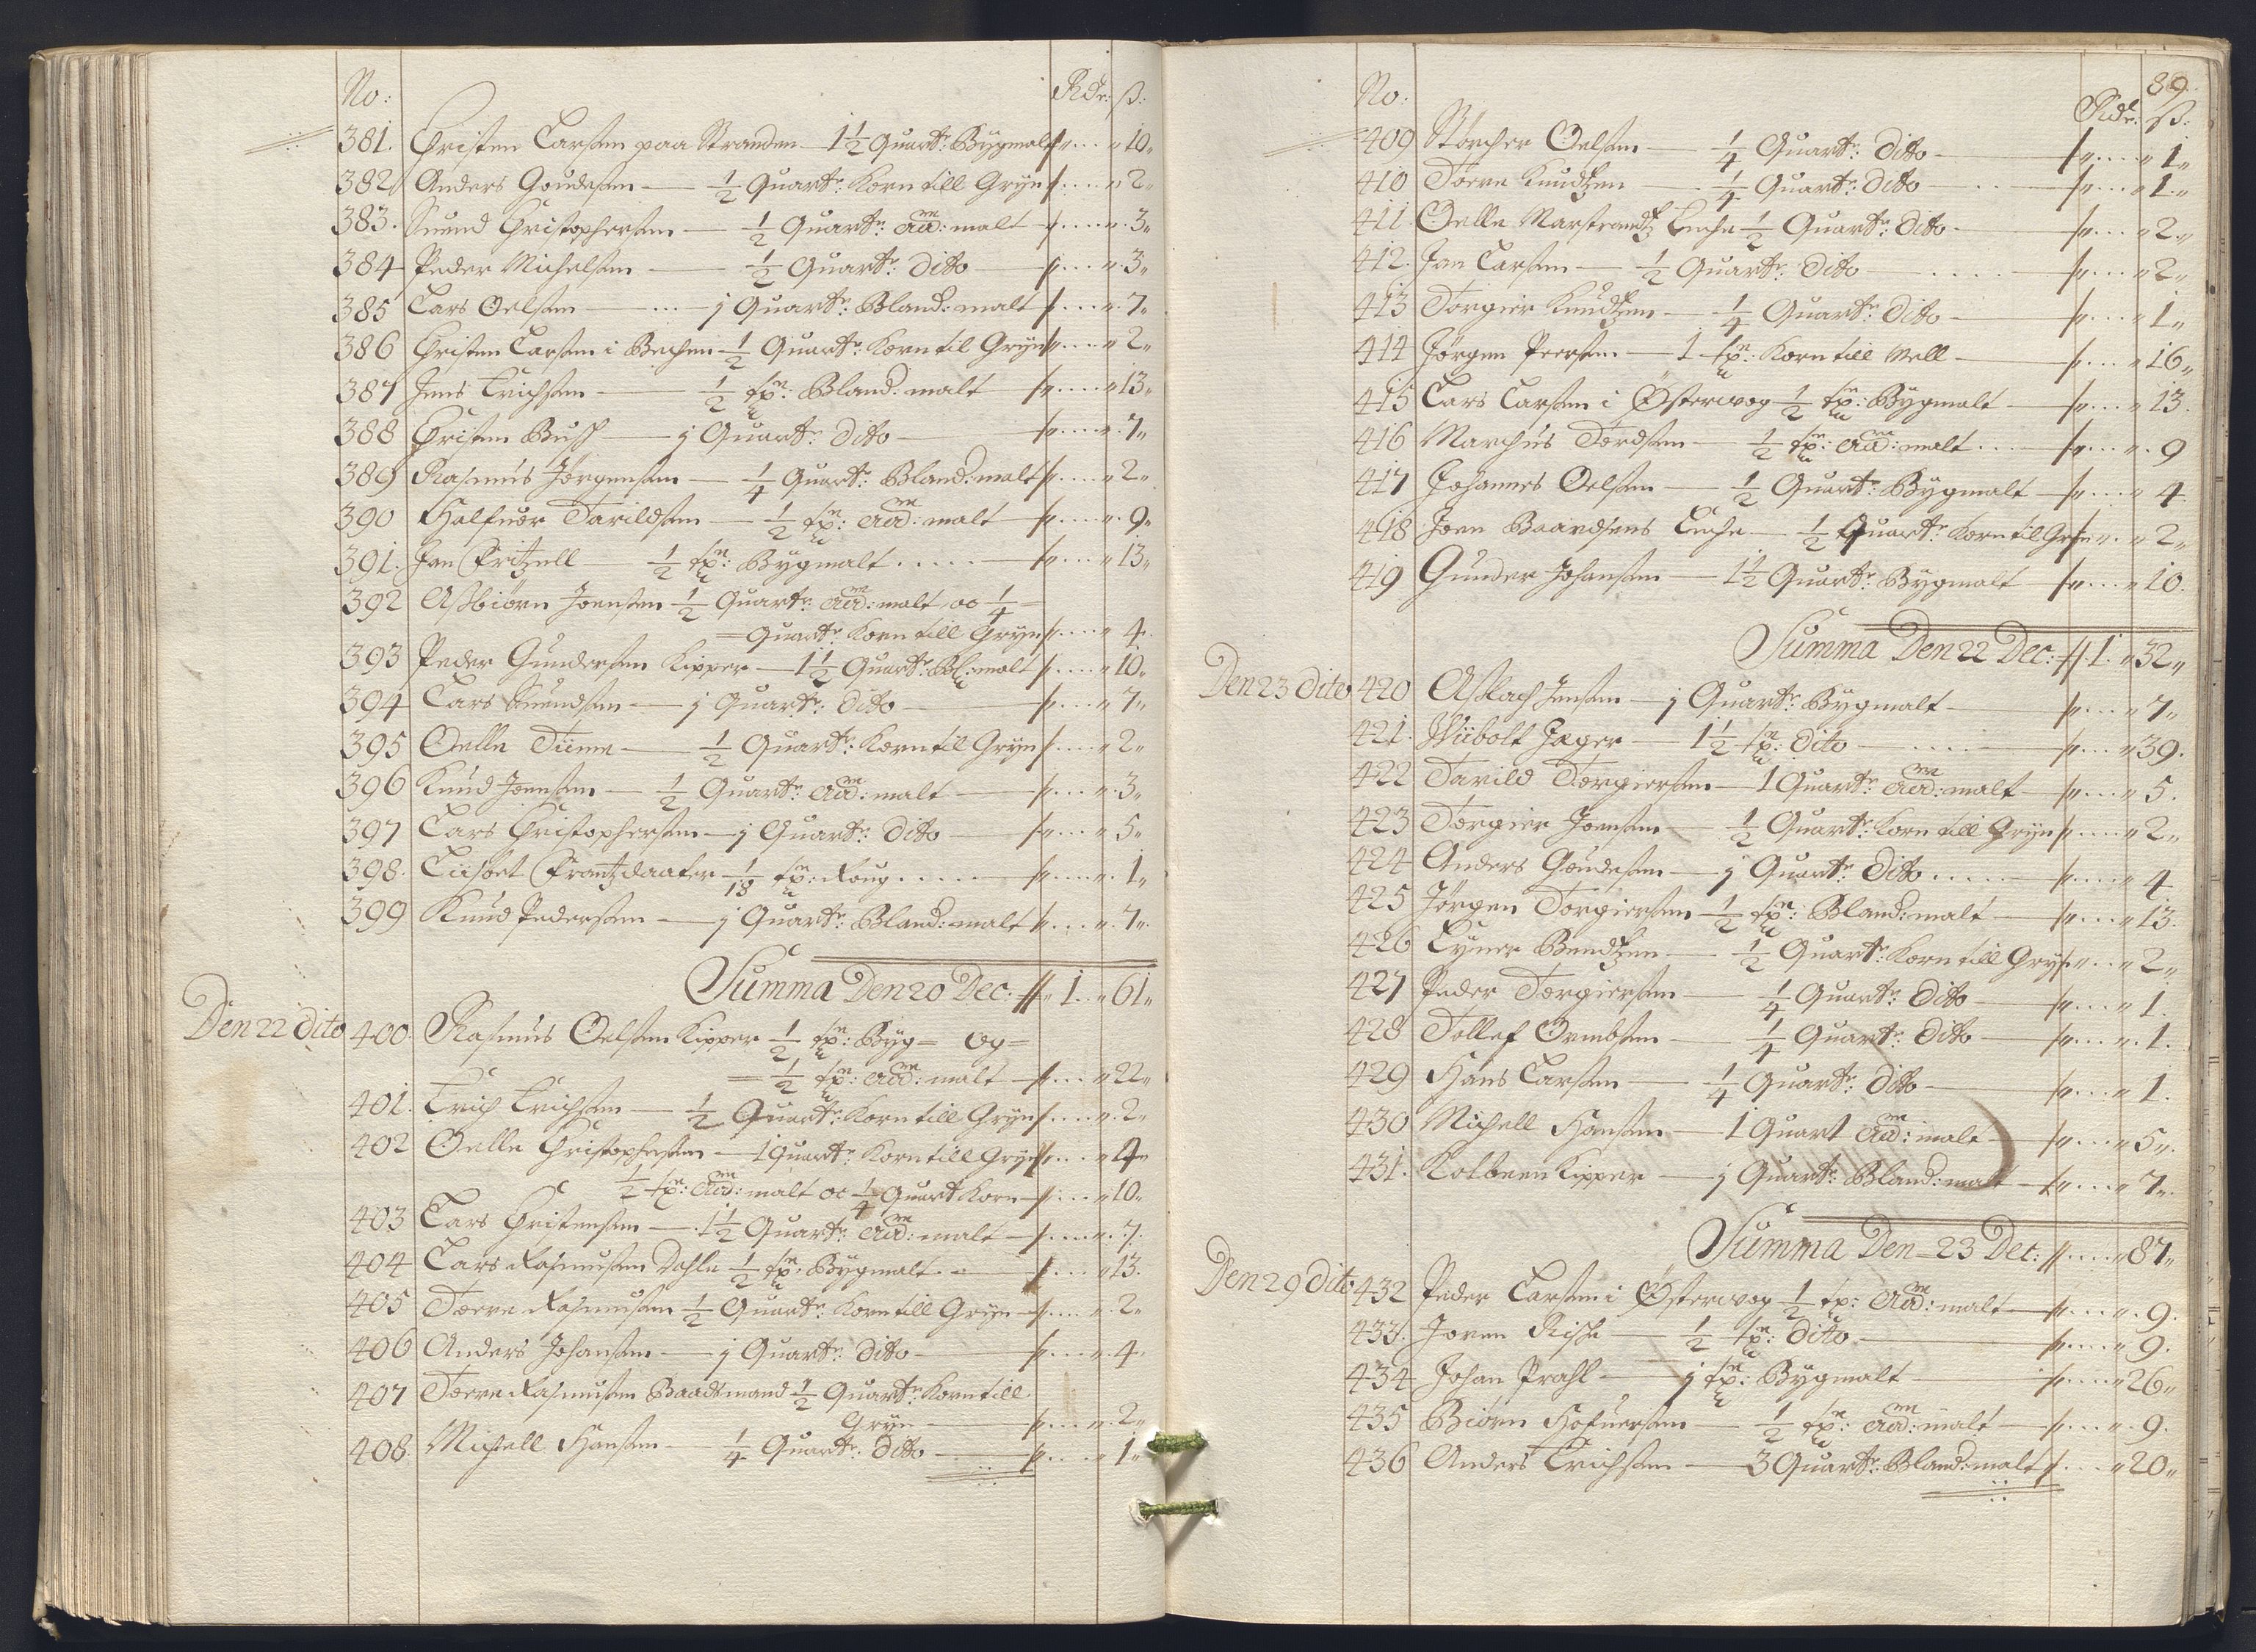 No: Rdr: ß:
381. Christen Larsen paa Stranden — 1½ Quartr: Bygmalt „ .... „ 10„
382 Anders Goudesen — ½ Quartr: Korn till Gryn „ .... „ 2„
383. Suend Christophersen — ½ Quartr: aad: malt „ .... „ 3„
384 Peder Michelsen — ½ Quartr: Ditto — „ .... „ 3„
385 Lars Oelsen — j Quartr: Bland: malt „ .... „ 7„
386 Christen Larsen i Bechen — ½ Quartr: Korn til Gryn „ .... „ 2„
387 Jens Erichsen — ½ tpn: Bland: malt „ .... „ 13„
388 Christen Busch — j Quartr: Ditto — „ .... „ 7„
389 Rasmus Jørgensen — ¼ Quartr: Bland: malt „ .... „ 2„
390 Halfuor Tarildsen — ½ tpn: aad: malt „ .... „ 9„
391. Jan Fritzell — ½ tpn: Bygmalt ..... — „ .... „ 13„
392 Asbiørn Joensen ½ Quartr: aad: malt oc ¼ =
= Quartr: Korn till Gryn „ .... „ 4„
393 Peder Gundersen Kipper — 1½ Quartr: Bl: malt „ .... „ 10„
394 Lars Suendsen — j Quartr: Ditto — „ .... „ 7„
395 Oelle Tiime — ½ Quartr: Korn til Gryn „ .... „ 2„
396 Knud Joensen — ½ Quartr: aad: malt — „ .... „ 3„
397 Lars Christophersen — j Quartr: Ditto — „ .... „ 5„
398. Liisbet Frantzdaater 1/18 tpn: Roug ..... — „ .... „ 1„
399 Knud Pedersen — j Quartr: Bland: malt „ .... „ 7„
Summa Den 20 Dec: „ 1. „ 61„
Den 22 Dito 400. Rasmus Oelsen Kipper ½ tpn: Byg = og =
= ½ tpn: aad: malt — „ .... „ 22„
401. Erich Erichsen — ½ Quartr: Korn till Gryn „ .... „ 2„
402 Oelle Christophersen — 1 Quartr: Korn till Gryn „ .... „ 4„
½ tpn: aad: malt oc ¼ Quart Korn — „ .... „ 10„
403 Lars Christensen — 1½ Quartr: aad: malt — „ .... „ 7.
404 Lars Rasmusen Dahle ½ tpn: Bygmalt — „ .... „ 13.
405 Torre Rasmusen ½ Quartr: Korn till Gryn — „ .... „ 2„
406 Anders Johansen — j Quartr: Ditto — „ .... „ 4„
407 Torre Rasmusen Baadsmand ½ Quartr: Korn till
Gryn — „ .... „ 2„
408 Michell Hansen — ¼ Quartr: Ditto — „ .... „ 1„
89.
No: Rdr: ß:
409 Størcher Oelsen — ¼ Quartr: Ditto — „ .... „ 1„
410 Torre Knudtzen — ¼ Quartr: Ditto — „ .... „ 1„
411 Oelle Marstrandtz Enche ½ Quartr: Ditto — „ .... „ 2„
412. Jan Larsen — ½ Quartr: Ditto — „ .... „ 2„
413 Torgier Knudtzen — ¼ Quartr: Ditto — „ .... „ 1„
414 Jørgen Peersen — 1 tpn: Korn till Mell — „ .... „ 16„
415 Lars Larsen i Østerwog ½ tpn: Bygmalt — „ .... „ 13.
416 Marchus Tordsen — ½ tpn: aad: malt ... „ .... „ 9
417 Johannes Oelsen — ½ Quart: Bygmalt — „ .... „ 4
418 Joen Baardsens Enche — ½ Quartr: Korn til Gryn „ .. „ 2„
419 Gunder Johansen — 1½ Quartr: Bygmalt — „ .... „ 10.
Summa Den 22 Dec: „ 1. „ 32„
Den 23 Dito 420 Aslach Jensen — j Quartr: Bygmalt — „ .... „ 7„
421. Wiibolt Jager — 1½ tpn: Dito — „ .... „ 39.
422 Tarild Torgiersen — 1 Quartr: aad: malt — „ .... „ 5.
423 Torgier Joensen — ½ Quartr: Korn till Gryn „ .... „ 2„
424 Anders Goudesen — j Quartr: Ditto ..... „ .... „ 4
425 Jørgen Torgiersen — ½ tpn: Bland: malt — „ .... „ 13.
426 Eyner Bendtzen — ½ Quartr: Korn till Gryn „ .... „ 2„
427 Peder Torgiersen — ¼ Quartr: Ditto — „ .... „ 1.
428 Tollef Ormbsen — ¼ Quartr: Ditto — „ .... „ 1.
429 Hans Larsen — ¼ Quartr: Ditto — „ .... „ 1.
430 Michell Hansen — 1 Quart aad: malt — „ .... „ 5„
431. Kolbeen Kipper — j Quartr: Bland: malt — „ .... „ 7„
Summa Den 23 Dec: „ .... „ 87„
Den 29 Dito 432 Peder Larsen i Østerwog ½ tp: aad: malt — „ .... „ 9.
433. Joren Riske — ½ tpn: Dito — „ .... „ 9.
434 Johan Prahl — j tpn: Bygmalt — „ .... „ 26„
435 Biørn Hofuersen — ½ tpn: aad: malt — „ .... „ 9.
436 Anders Erichsen — 3 Quartr: Bland: malt „ .... „ 20„